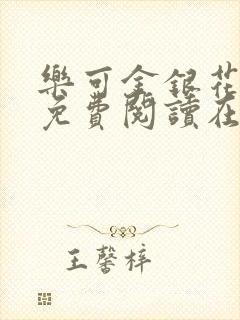 樂可金銀花
免費閱讀在
王馨梓